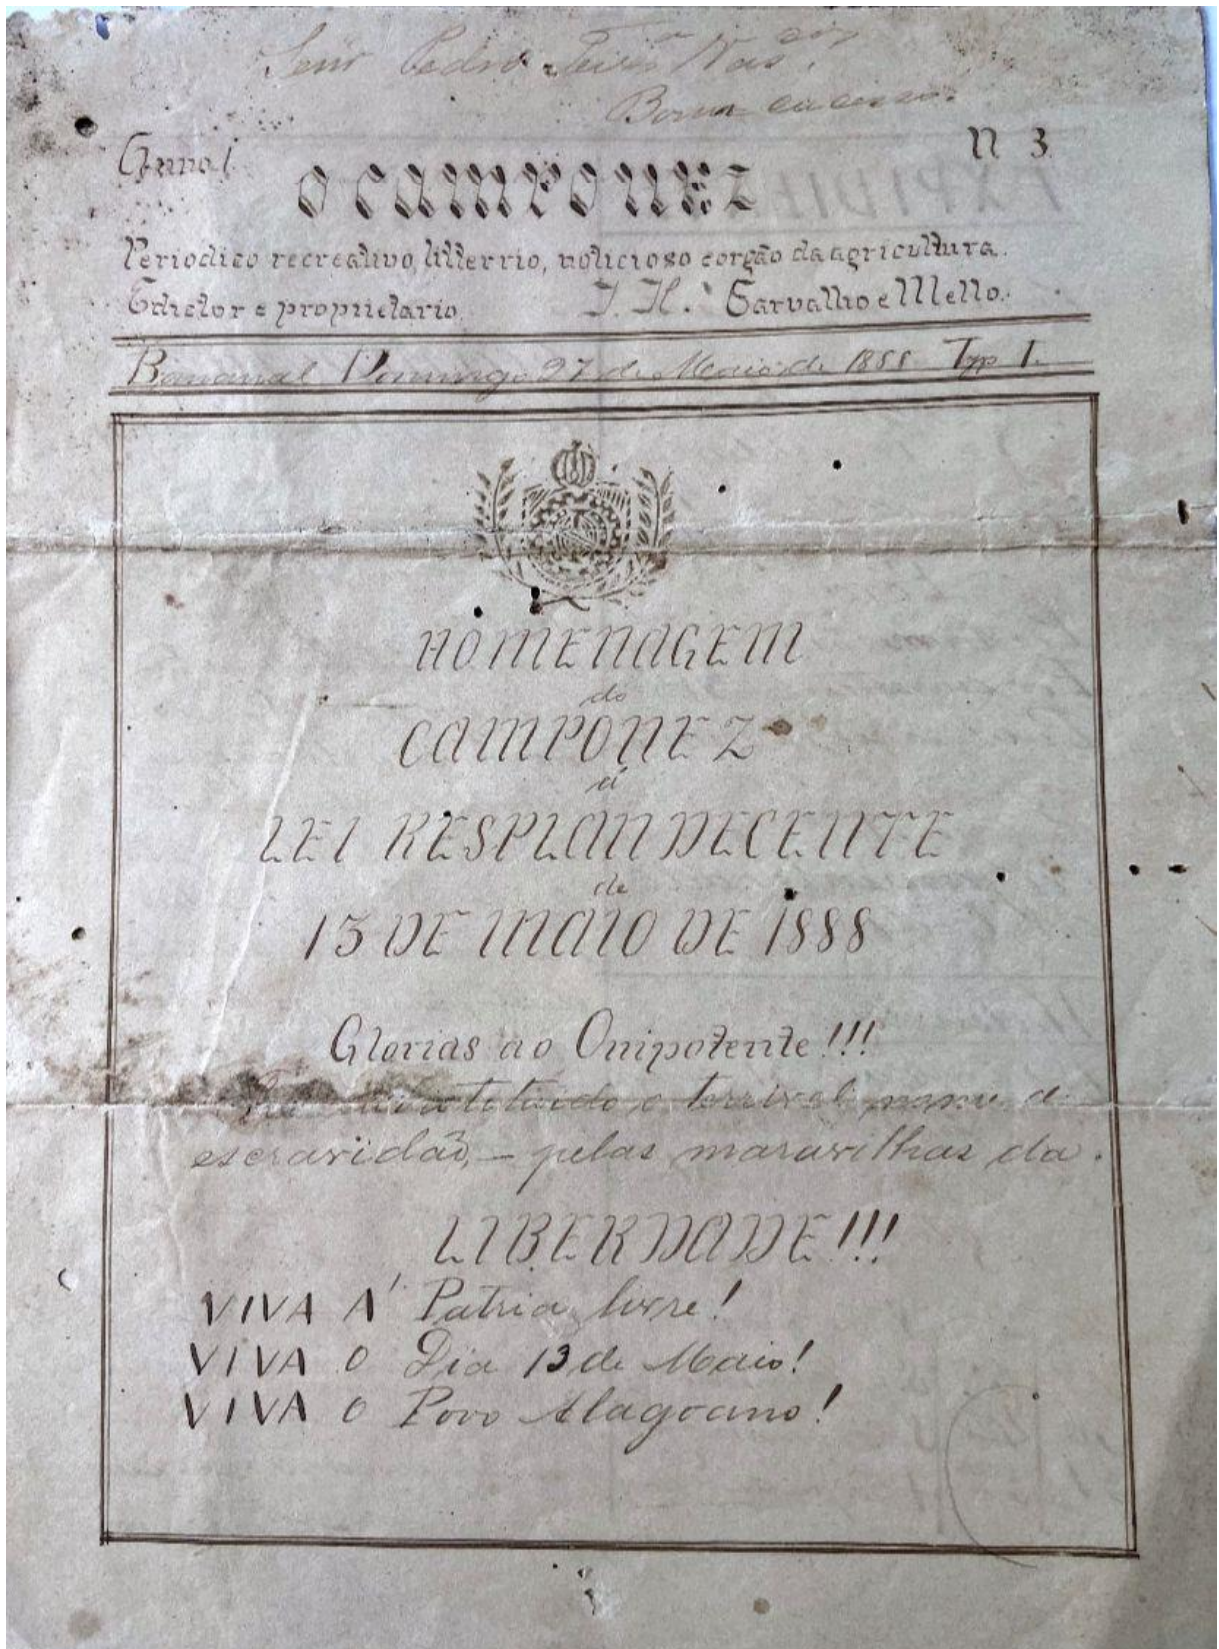 Senr Pedro
Bom
Anno 1. N 3
O CAMPONEZ
Periodico recreativo, litterrio, noticioso e orgão da agricultura.
Edictor e proprietario J. H. Carvalho e Mello.
Bananal Domingo 27 de Maio de 1888. Typ 1.
HOMENAGEM
do
CAMPONEZ
á
LEI RESPLANDECENTE
de
13 DE MAIO DE 1888
Glorias ao Onipotente!!!
o terrivel nome de
escravidão, – pelas maravilhas da.
LIBERDADE!!!
VIVA A' Patria livre!
VIVA O Dia 13 de Maio!
VIVA O Povo Alagoano!